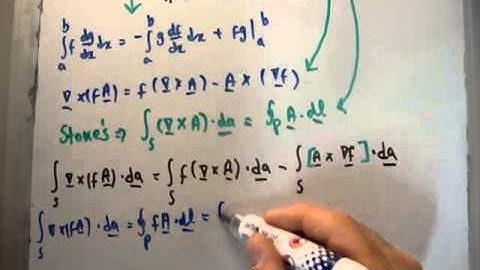 ∫_a^b f dg/dx dx = -∫_a^b g df/dx dx + fg|_a^b
∇×(fA) = f(∇×A) - A×(∇f)
Stoke's ⇒ ∫_S (∇×A)·da = ∮_P A·dl
∫_S ∇×(fA)·da = ∫_S f(∇×A)·da - ∫_S [A×∇f]·da
∫_S ∇×(fA)·da = ∮_P fA·dl =